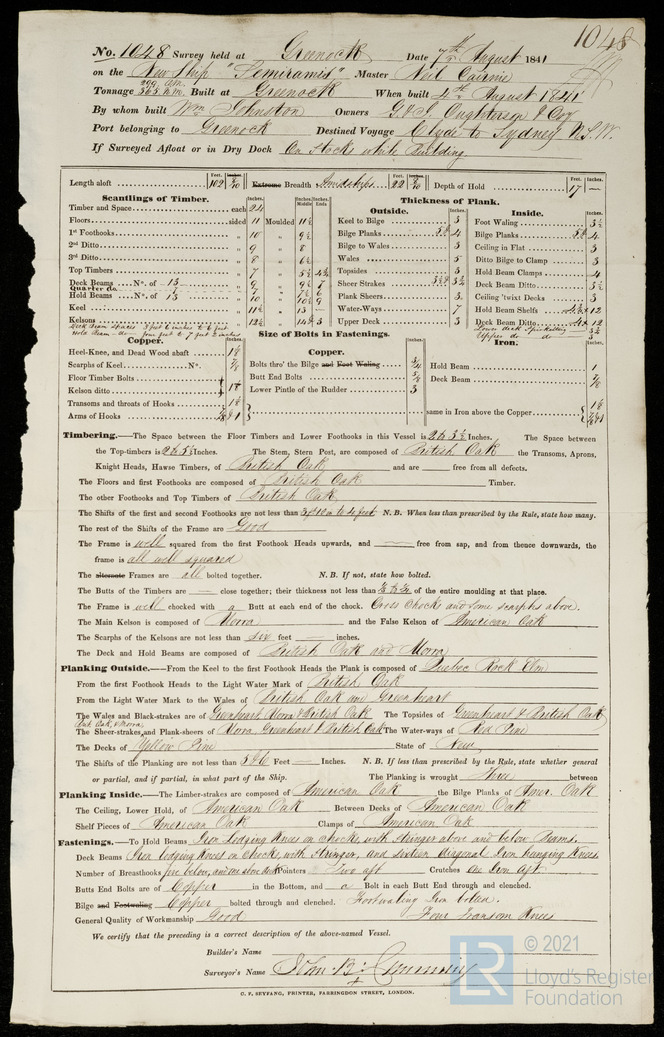 1048
No. 1048 Survey held at Greenock Date 7th August 1841
on the New Ship "Semiramis" Master Neil Cairnie
Tonnage Built at Greenock When built 4th August 1841
By whom built Wm Johnston Owners & Coy
Port belonging to Greenock Destined Voyage Clyde to Sydney N.S.W.
If Surveyed Afloat or in Dry Dock On Stocks while Building
Length aloft 102 Extreme Breadth Amidships 22 Depth of Hold 17 —
Scantlings of Timber. Thickness of Plank.
Outside. Inside.
Timber and Space each 24
Floors sided 11 Moulded 11½
1st Foothooks 10
2nd Ditto 9 8
3rd Ditto 8
Top Timbers 7
Deck Beams No. of 13
Hold Beams No. of 13
Keel
Kelsons
Keel to Bilge 3
Bilge Planks 4
Bilge to Wales 3
Wales 5
Topsides 3
Sheer Strakes
Plank Sheers 3
Water-Ways 7
Upper Deck 3
Foot Waling 3½
Bilge Planks 4
Ceiling in Flat 3
Ditto Bilge to Clamp 3
Hold Beam Clamps 4
Deck Beam Ditto 3½
Ceiling 'twixt Decks 3
Hold Beam Shelfs 12
Deck Beam Ditto 12
Size of Bolts in Fastenings.
Copper. Copper. Iron.
Heel-Knee, and Dead Wood abaft 1⅛
Scarphs of Keel No. ⅞
Floor Timber Bolts
Kelson ditto
Transoms and throats of Hooks 1⅛
Arms of Hooks
Bolts thro' the Bilge and Foot Waling ¾
Butt End Bolts ⅝
Lower Pintle of the Rudder 3
Hold Beam 1
Deck Beam ⅞
same in Iron above the Copper
Timbering.—The Space between the Floor Timbers and Lower Foothooks in this Vessel is 2 to 3½ Inches. The Space between
the Top-timbers is 2 to 5½ Inches. The Stem, Stern Post, are composed of British Oak the Transoms, Aprons,
Knight Heads, Hawse Timbers, of British Oak and are free from all defects.
The Floors and first Foothooks are composed of British Oak Timber.
The other Foothooks and Top Timbers of British Oak
The Shifts of the first and second Foothooks are not less than N.B. When less than prescribed by the Rule, state how many.
The rest of the Shifts of the Frame are Good
The Frame is well squared from the first Foothook Heads upwards, and — free from sap, and from thence downwards, the
frame is all well squared
The alternate Frames are all bolted together. N.B. If not, state how bolted.
The Butts of the Timbers are — close together; their thickness not less than of the entire moulding at that place.
The Frame is well chocked with a Butt at each end of the chock. Cross Chocks and some scarphs above.
The Main Kelson is composed of Morra and the False Kelson of American Oak
The Scarphs of the Kelsons are not less than six feet — inches.
The Deck and Hold Beams are composed of British Oak and Morra
Planking Outside.—From the Keel to the first Foothook Heads the Plank is composed of Quebec Rock Elm
From the first Foothook Heads to the Light Water Mark of British Oak
From the Light Water Mark to the Wales of British Oak and Greenheart
The Wales and Black-strakes are of Greenheart, Morra & British Oak The Topsides of Greenheart & British Oak
The Sheer-strakes and Plank-sheers of Morra Greenheart & British Oak The Water-ways of Red Pine
The Decks of Yellow Pine State of New
The Shifts of the Planking are not less than 5 & 6 Feet — Inches. N.B. If less than prescribed by the Rule, state whether general
or partial, and if partial, in what part of the Ship. The Planking is wrought Three between
Planking Inside.—The Limber-strakes are composed of American Oak the Bilge Planks of Amer. Oak
The Ceiling, Lower Hold, of American Oak Between Decks of American Oak
Shelf Pieces of American Oak Clamps of American Oak
Fastenings.—To Hold Beams Iron Lodging Knees on chocks, with Stringer above and below Beams.
Deck Beams Iron lodging Knees on Chocks, with Stringer, and sixteen diagonal Iron hanging Knees.
Number of Breasthooks five below, and one above deck Pointers Two aft Crutches One Iron aft
Butts End Bolts are of Copper in the Bottom, and a Bolt in each Butt End through and clenched.
Bilge and Footwaling Copper bolted through and clenched. Footwaling Iron bolted.
General Quality of Workmanship Good Four Transom Knees
We certify that the preceding is a correct description of the above-named Vessel.
Builder's Name
Surveyor's Name John B. Cumming
C. F. SEYFANG, PRINTER, FARRINGDON STREET, LONDON.
LR © 2021
Lloyd's Register
Foundation